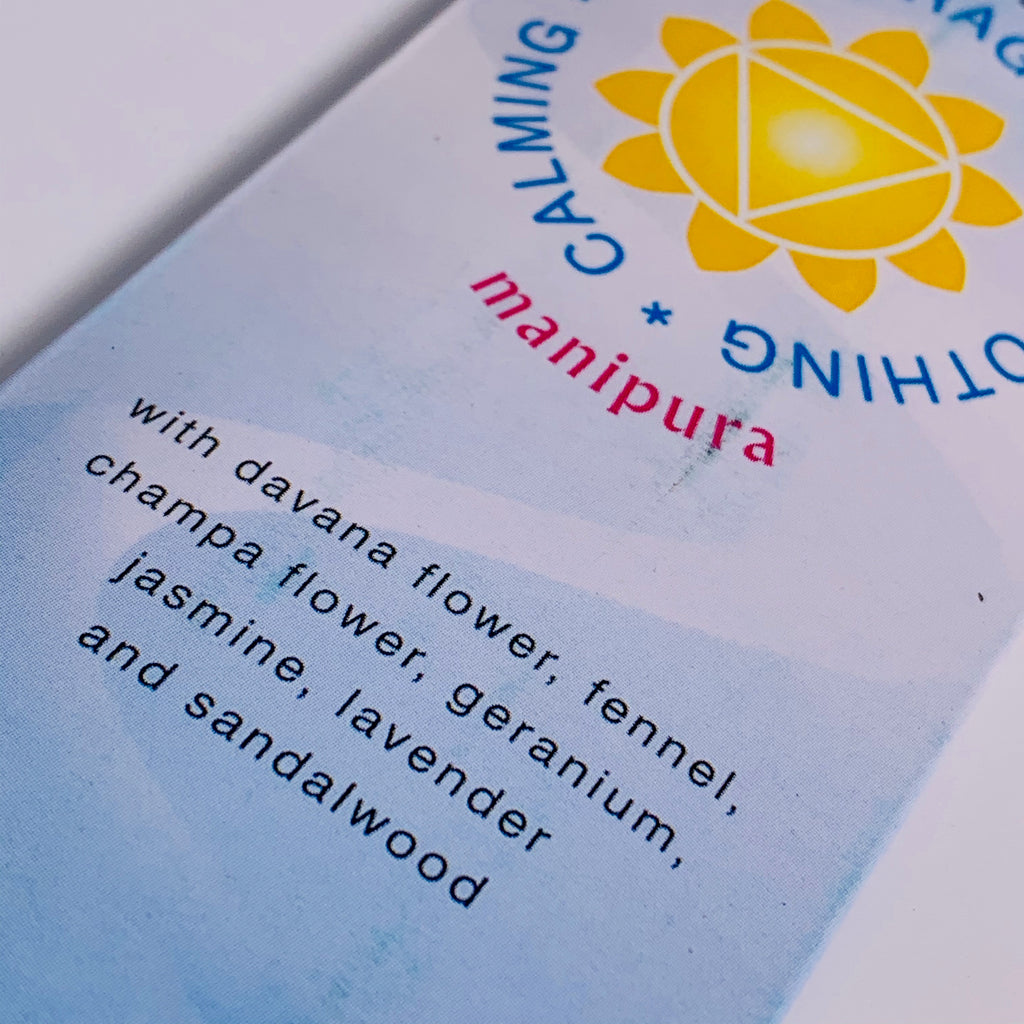 CALMING
*
manipura
with davana flower, fennel,
champa flower, geranium,
jasmine, lavender
and sandalwood